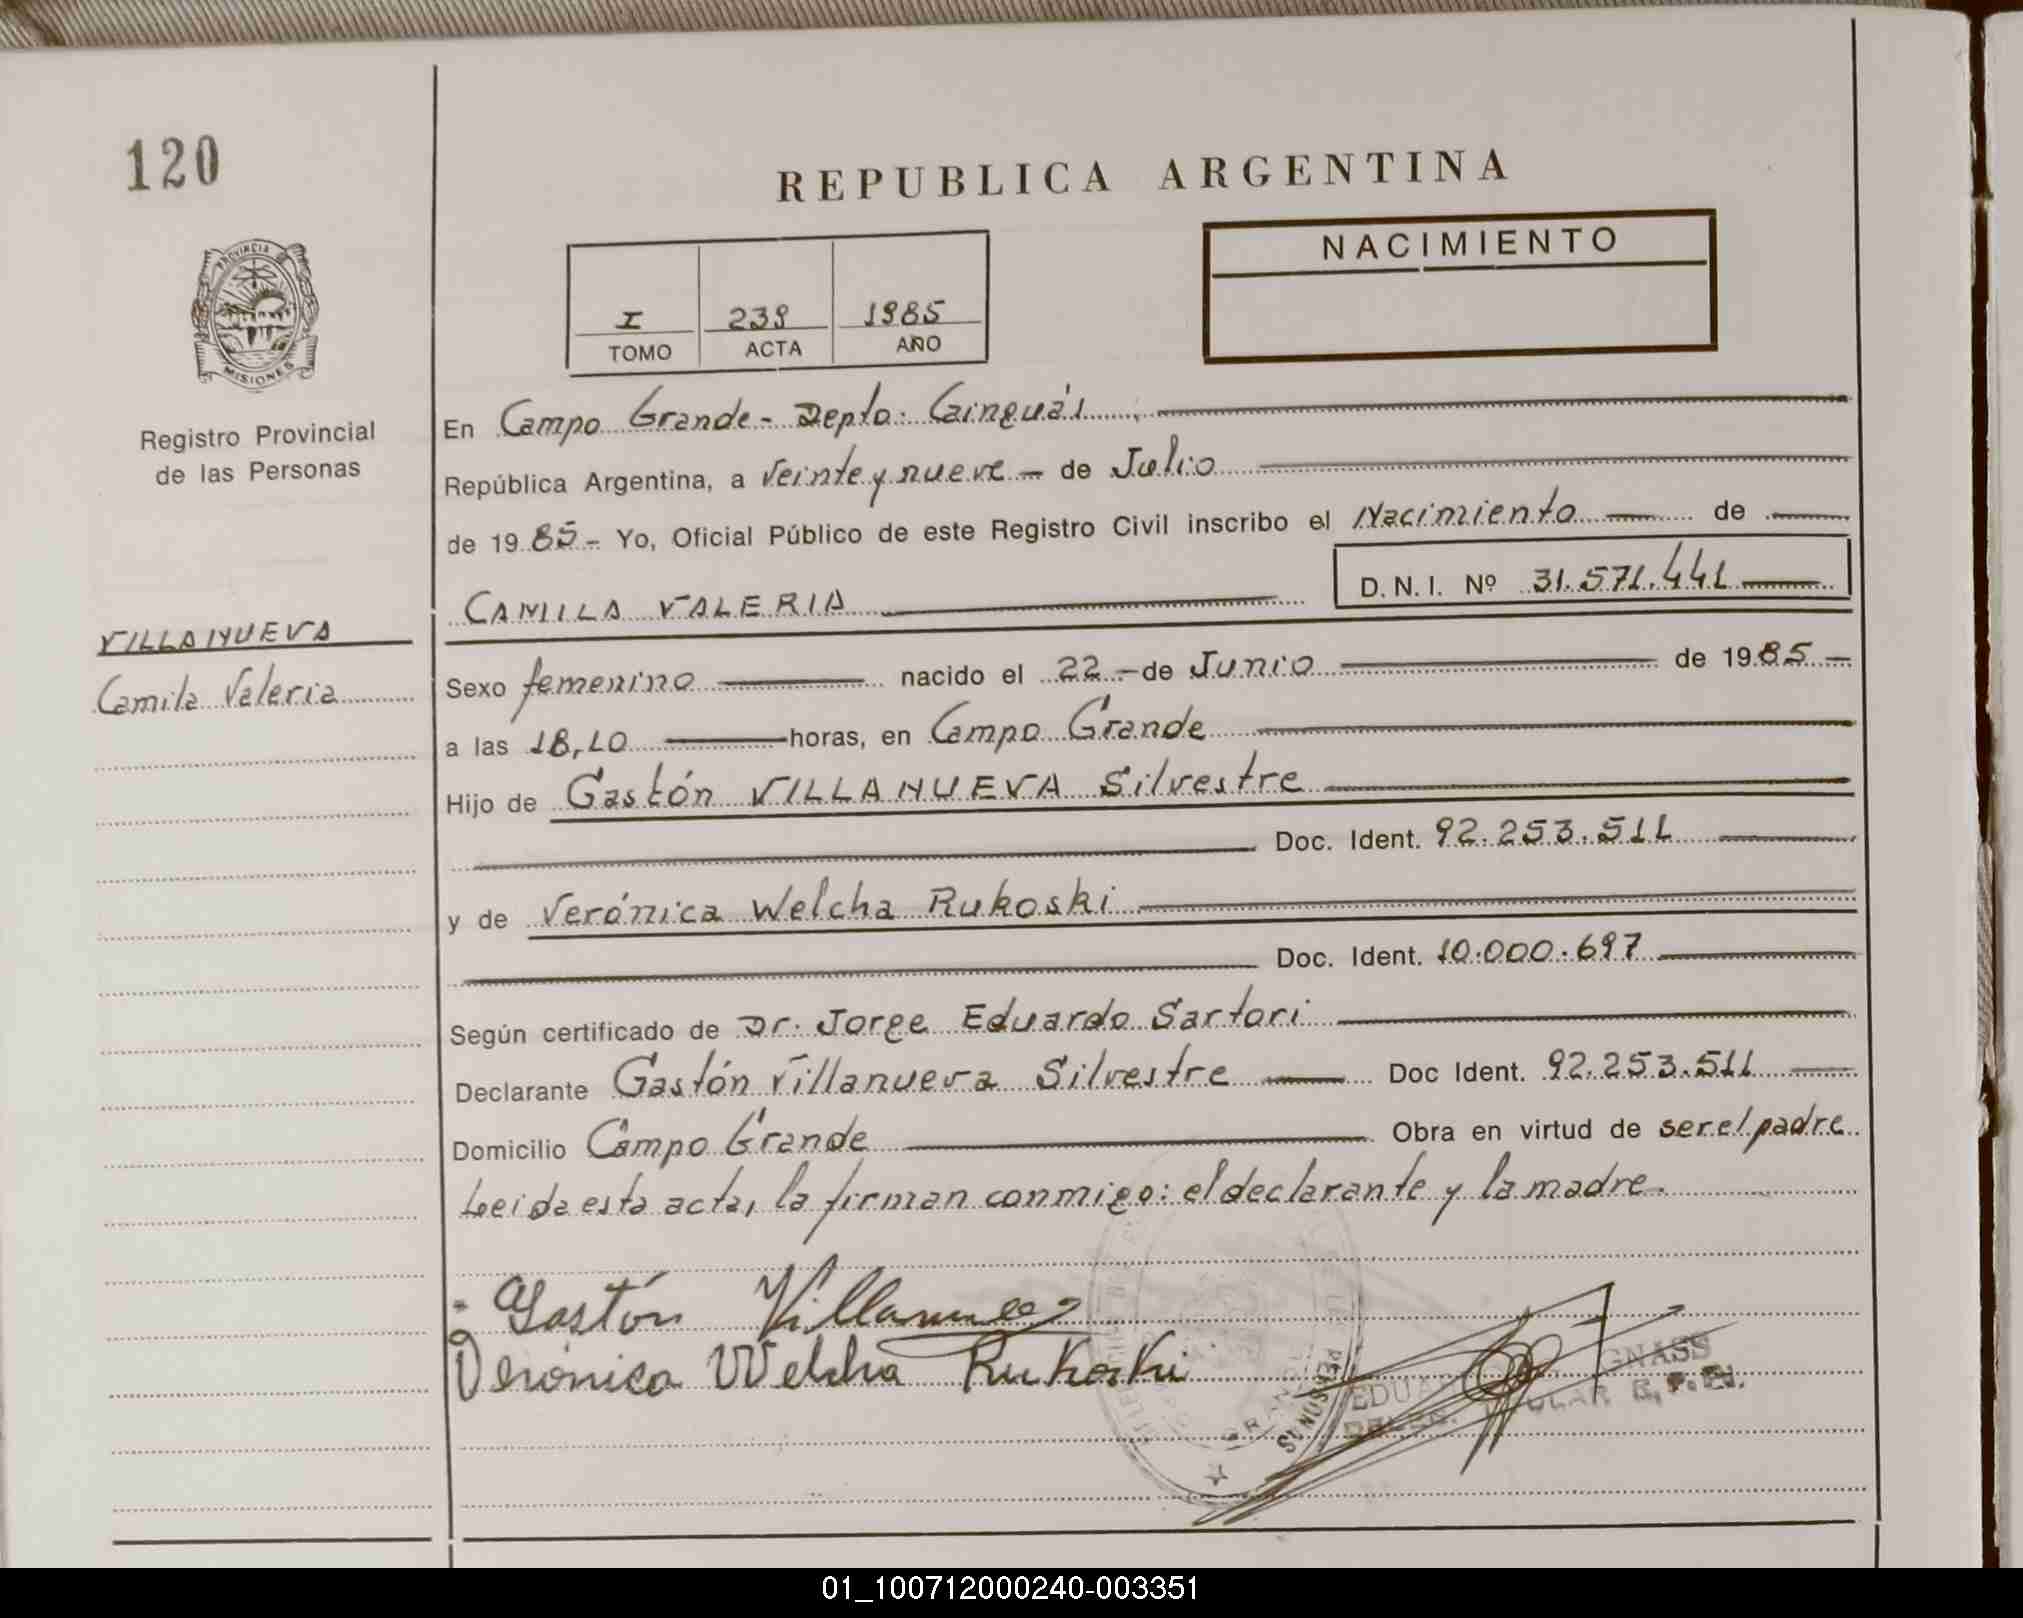 120
REPUBLICA ARGENTINA
NACIMIENTO
I 239 1985
TOMO ACTA AÑO
PROVINCIA
MISIONES
Registro Provincial
de las Personas
En Campo Grande - Depto: Cainguás
República Argentina, a veinte y nueve - de Julio
de 1985 - Yo, Oficial Público de este Registro Civil inscribo el Nacimiento de
CAMILA VALERIA D.N.I. Nº 31.571.441
VILLANUEVA
Camila Valeria
Sexo femenino nacido el 22 - de Junio de 1985 -
a las 18,10 horas, en Campo Grande
Hijo de Gastón VILLANUEVA Silvestre
Doc. Ident. 92.253.511
y de Verónica Welcha Rukoski
Doc. Ident. 10.000.697
Según certificado de Dr. Jorge Eduardo Sartori
Declarante Gastón Villanueva Silvestre Doc Ident. 92.253.511
Domicilio Campo Grande Obra en virtud de ser el padre
Leida esta acta, la firman conmigo: el declarante y la madre.
Gastón Villanueva
Verónica Welcha Rukoski
01_100712000240-003351